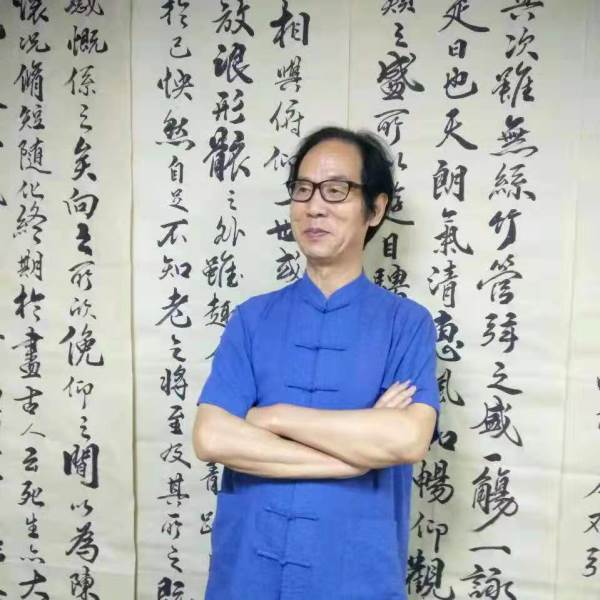 其次雖無絲竹管弦之盛一觴一詠
是日也天朗氣清惠風和暢仰觀
類之盛所以遊目騁
相與俯仰一世或
放浪形骸之外雖趣
於己快然自足不知老之將至及其所之既
感慨係之矣向之所欣俛仰之閒以為陳
懷況脩短隨化終期於盡古人云死生亦大